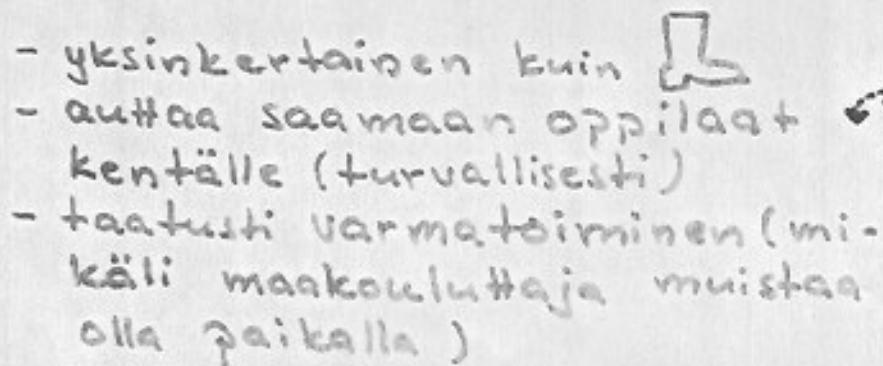 - yksinkertainen kuin
- auttaa saamaan oppilaat
kentälle (turvallisesti)
- taatusti varmatoiminen (mi-
käli maakouluttaja muistaa
olla paikalla)